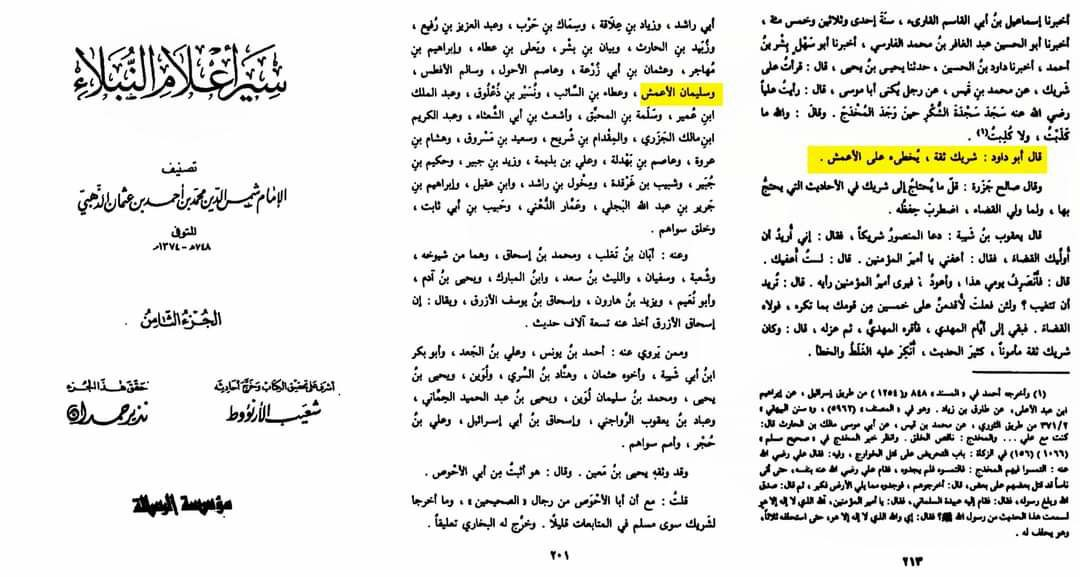 سير أعلام النبلاء
تصنيف
الإمام شمس الدين محمد بن أحمد بن عثمان الذهبي
المتوفى
٧٤٨هـ - ١٣٧٤م
الجزء الثامن
أشرف على تحقيق الكتاب وخرج أحاديثه
شعيب الأرنؤوط
حقق هذا الجزء
نذير حمدان
مؤسسة الرسالة
أبي راشد ، وزياد بنِ عِلاقة ، وسِماك بنِ حَرْب ، وعبد العزيز بنِ رُفيع ،
وزُبَيد بنِ الحارث ، وبيان بنِ بِشْر ، ويَعلى بنِ عطاء ، وإبراهيم بنِ
مُهاجر ، وعثمان بنِ أبي زُرْعة ، وعاصم الأحول ، وسالم الأفطس ،
وسليمان الأعمش ، وعطاء بنِ السائب ، ونُسَيْر بنِ ذُعْلُوق ، وعبد الملك
ابنِ عُمير ، وسَلَمة بنِ المحبَّق ، وأشعث بنِ أبي الشعثاء ، وعبد الكريم
ابنِ مالك الجَزَري ، والمِقْدام بنِ شُريح ، وسعيد بنِ مَسْروق ، وهشام بنِ
عروة ، وعاصم بنِ بَهْدلة ، وعلي بنِ بذيمة ، وزيد بنِ جبير ، وحكيم بنِ
جُبَير ، وشبيب بنِ غَرْقدة ، ومِخْول بنِ راشد ، وابنِ عقيل ، وإبراهيم بنِ
جَرير بنِ عبد الله البَجلي ، وعمَّار الدُّهْني ، وحَبيب بنِ أبي ثابت ،
وخلق سواهم .
وعنه : أبَان بنُ تَغلب ، ومحمد بنُ إسحاق ، وهما من شيوخه ،
وشُعبة ، وسفيان ، والليث بنُ سعد ، وابنُ المبارك ، ويحيى بنُ آدم ،
وأبو نُعيم ، ويزيد بنُ هارون ، وإسحاق بنُ يوسف الأزرق ، ويقال : إن
إسحاق الأزرق أخذ عنه تسعة آلاف حديث .
وممن يَروي عنه : أحمد بنُ يونس ، وعلي بنُ الجَعد ، وأبو بكر
ابنُ أبي شَيبة ، وأخوه عثمان ، وهنَّاد بنُ السري ، ولُوَين ، ويحيى بنُ
يحيى ، ومحمد بنُ سليمان لُوَين ، ويحيى بنُ عبد الحميد الحِمَّاني ،
وعباد بنُ يعقوب الرَّواجني ، وإسحاق بنُ أبي إسرائيل ، وعلي بنُ
حُجْر ، وأمم سواهم .
وقد وثقه يحيى بنُ مَعين . وقال : هو أثبتُ مِن أبي الأحوص .
قلتُ : مع أن أبا الأحْوَص من رجال « الصحيحين » ، وما أخرجا
لشَريك سوى مسلم في المتابعات قليلًا . وخرَّج له البخاري تعليقاً .
٢٠١
أخبرنا إسماعيل بنُ أبي القاسم القارىء ، سنَّةَ إحدى وثلاثين وخمس مئة ،
أخبرنا أبو الحسين عبد الغافر بنُ محمد الفارسي ، أخبرنا أبو سَهْلٍ بِشْر بنُ
أحمد ، أخبرنا داود بنُ الحسين ، حدثنا يحيى بنُ يحيى ، قال : قرأتُ على
شريك ، عن محمد بنِ قيس ، عن رجل يُكنى أبا موسى ، قال : رأيتُ علياً
رضي الله عنه سَجَدَ سَجْدَةَ الشُّكْرِ حينَ وَجَدَ المُخْدَجَ . وقالَ : والله ما
كَذَبْتُ ، ولا كُذِبتُ(١) .
قال أبو داود : شريك ثقة ، يُخطىء على الأعمش .
وقال صالح جَزَرة : قلَّ ما يُحتاجُ إلى شريك في الأحاديث التي يحتجُّ
بها ، ولما ولي القضاء ، اضطربَ حِفظُه .
قال يعقوب بنُ شَيبة : دعا المنصورُ شريكاً ، فقال : إني أُريدُ أن
أوليَك القضاءَ ، فقال : أعفني يا أميرَ المؤمنين . قال : لستُ أُعفيك .
قال : فأنْصَرِفُ يومي هذا ، وأعودُ ، فيرى أميرُ المؤمنين رأيه . قال : تُريد
أن تتغيب ؟ ولئن فعلتَ لأُقدمنَّ على خمسين مِن قومك بما تكره ، فولاه
القضاءَ . فبقي إلى أيَّام المهدي ، فأقره المهديُّ ، ثم عزله ، قال : وكان
شريك ثقة مأموناً ، كثيرَ الحديث ، أُنكِرَ عليه الغَلَطُ والخطأ .
(١) وأخرجه أحمد في « المسند » ٨٤٨ و( ١٢٥٤ ) من طريق إسرائيل ، عن إبراهيم
ابن عبد الأعلى، عن طارق بن زياد . وهو في « المصنف » (٥٩٦٣) ، و« سنن البيهقي »
٣٧١/٢ من طريق الثوري ، عن محمد بن قيس ، عن أبي موسى مالك بن الحارث قال :
كنت مع علي ... والمخدج : ناقص الخلق . وانظر خبر المخدج في « صحيح مسلم »
(١٠٦٦) (١٥٦) في الزكاة : باب التحريض على قتل الخوارج ، وفيه: فقال علي رضي الله
عنه : التمسوا فيهم المخدج : فالتمسوه فلم يجدوه، فقام علي رضي الله عنه بنفسه، حتى أتى
ناساً قد قتل بعضهم على بعض، قال: أخرجوهم ، فوجدوه مما يلي الأرض فكبر ، ثم قال: صدق
الله وبلغ رسوله، فقال: فقام إليه عبيدة السلماني ، فقال: يا أمير المؤمنين، آلله الذي لا إله إلا هو
لسمعت هذا الحديث من رسول الله ﷺ؟ فقال: إي والله الذي لا إله إلا هو، حتى استحلفه ثلاثاً،
وهو يحلف له .
٢١٣